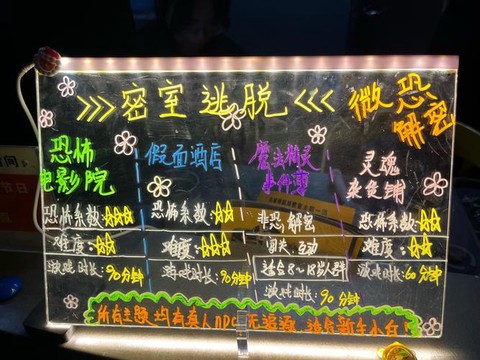 >>> 密室逃脱 <<<
微恐
解密
恐怖
电影院
恐怖系数:☆☆☆
难度:☆☆
游戏时长:90分钟
假面酒店
恐怖系数:☆☆
难度:☆☆
游戏时长:90分钟
魔法精灵
事件簿
非恐解密
闯关、互动
适合8~18岁人群
游戏时长:90分钟
灵魂
杂货铺
恐怖系数:☆☆
难度:☆☆
游戏时长:60分钟
所有主题均有真人NPC